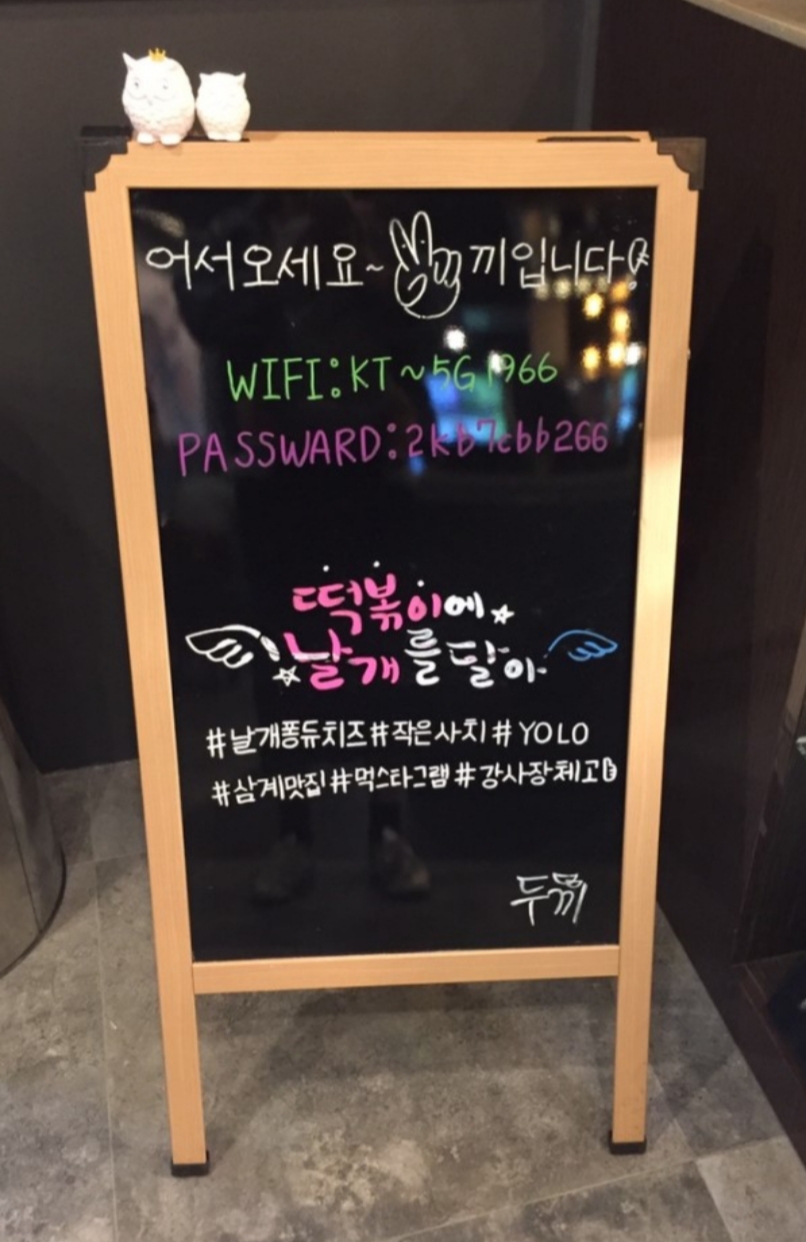 어서오세요~ 끼입니다!
WIFI:KT~5G1966
PASSWARD:2kb7cbb266
떡볶이에
날개를 달아
#날개퐁듀치즈#작은사치#YOLO
#삼계맛집#먹스타그램#강사장체고
두끼